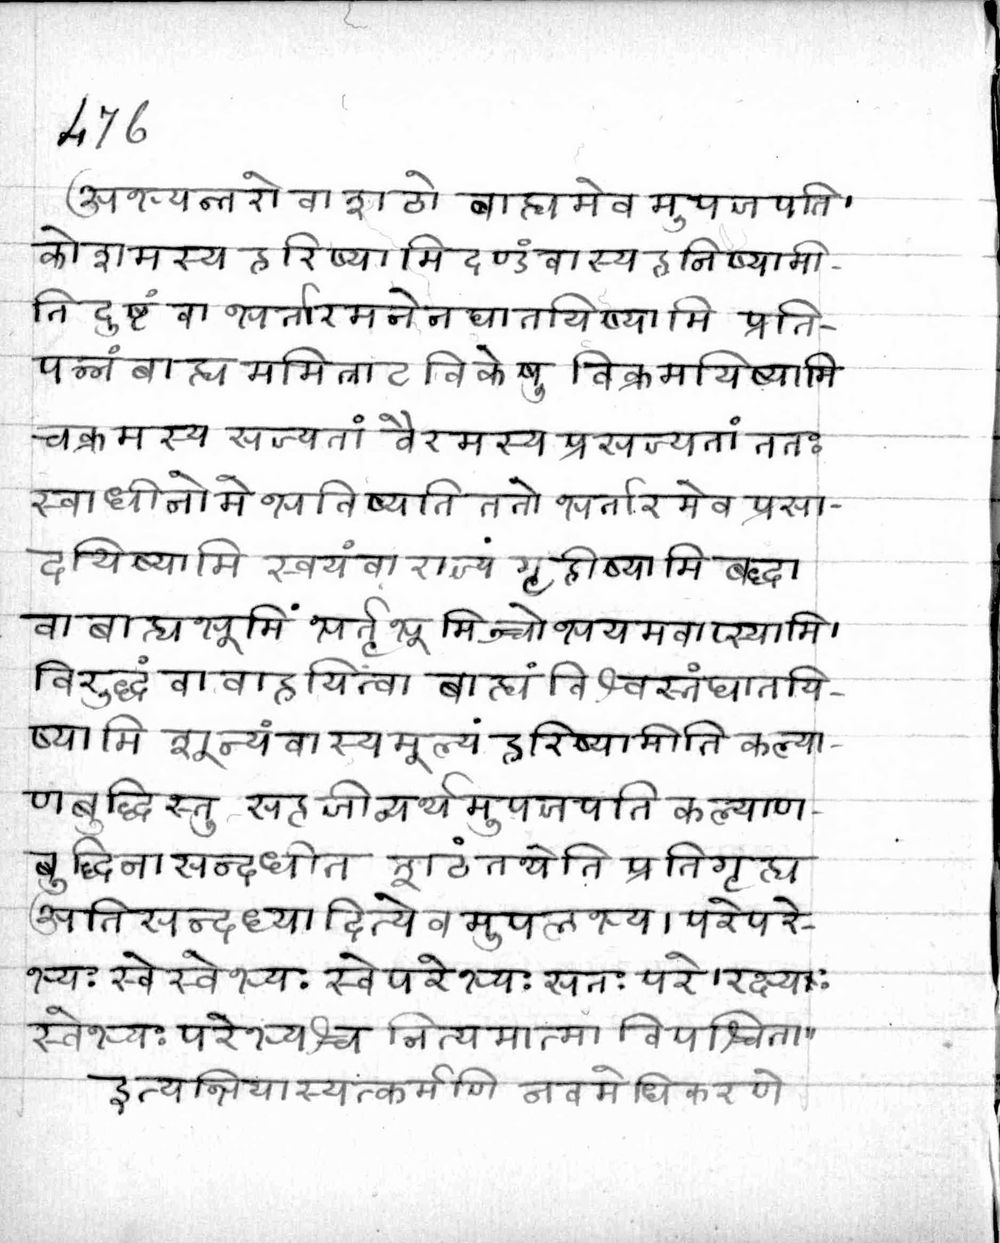 476
अभ्यन्तरो वा शठो बाह्यमेवमुपजपति।
कोशमस्य हरिष्यामि दण्डं वास्य हनिष्यामी-
ति दुष्टं वा भर्तारमनेन घातयिष्यामि प्रति-
पन्नं बाह्यममित्राटविकेषु विक्रमयिष्यामि
चक्रमस्य सज्यतां वैरमस्य प्रसज्यतां ततः
स्वाधीनो मे भविष्यति ततो भर्तारमेव प्रसा-
दयिष्यामि स्वयं वा राज्यं गृहीष्यामि बद्धा
वा बाह्यभूमिं भर्तृभूमिञ्चोभयमवाप्स्यामि।
विरुद्धं वा वाहयित्वा बाह्यं विश्वस्तं घातयि-
ष्यामि शून्यं वास्य मूल्यं हरिष्यामीति कल्या-
णबुद्धिस्तु सहजीव्यर्थमुपजपति कल्याण-
बुद्धिना सन्दधीत शठं तथेति प्रतिगृह्य
अतिसन्दध्यादित्येवमुपलभ्य। परे परे-
भ्यः स्वे स्वेभ्यः स्वे परेभ्यः स्वतः परे। रक्ष्याः
स्वेभ्यः परेभ्यश्च नित्यमात्मा विपश्चिता॥
इत्यभियास्यत्कर्मणि नवमेधिकरणे